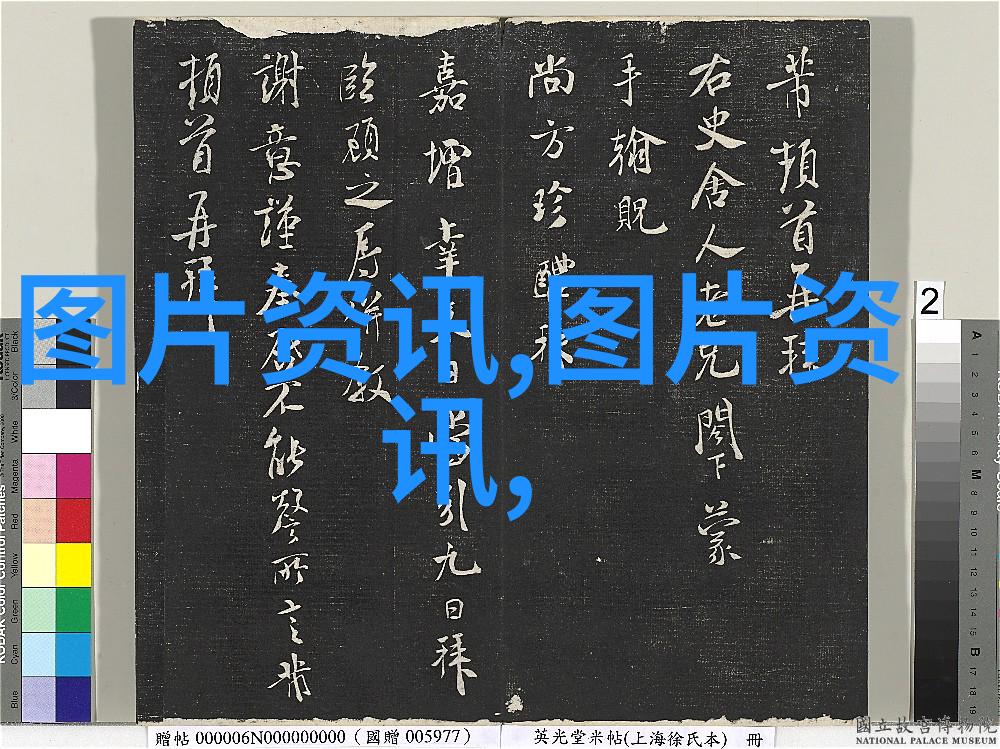 芾頓首再拜
右史舍人老兄閣下蒙
手翰貺
尚方珍醴
嘉增
臨顧之
謝意謹
不能整所言芾
頓首再拜
引九日拜
图片资讯,图片资
讯,
2
贈帖 000006N000000000 (國贈 005977)
英光堂米帖(上海徐氏本) 冊
國立故宮博物院
NATIONAL PALACE MUSEUM
KODAK Color Control Patches
Blue
Cyan
Green
Yellow
Red
Magenta
White
3/Color
Black
A
1
2
3
4
5
6
M
8
9
10
11
12
13
14
15
B
17
18
19